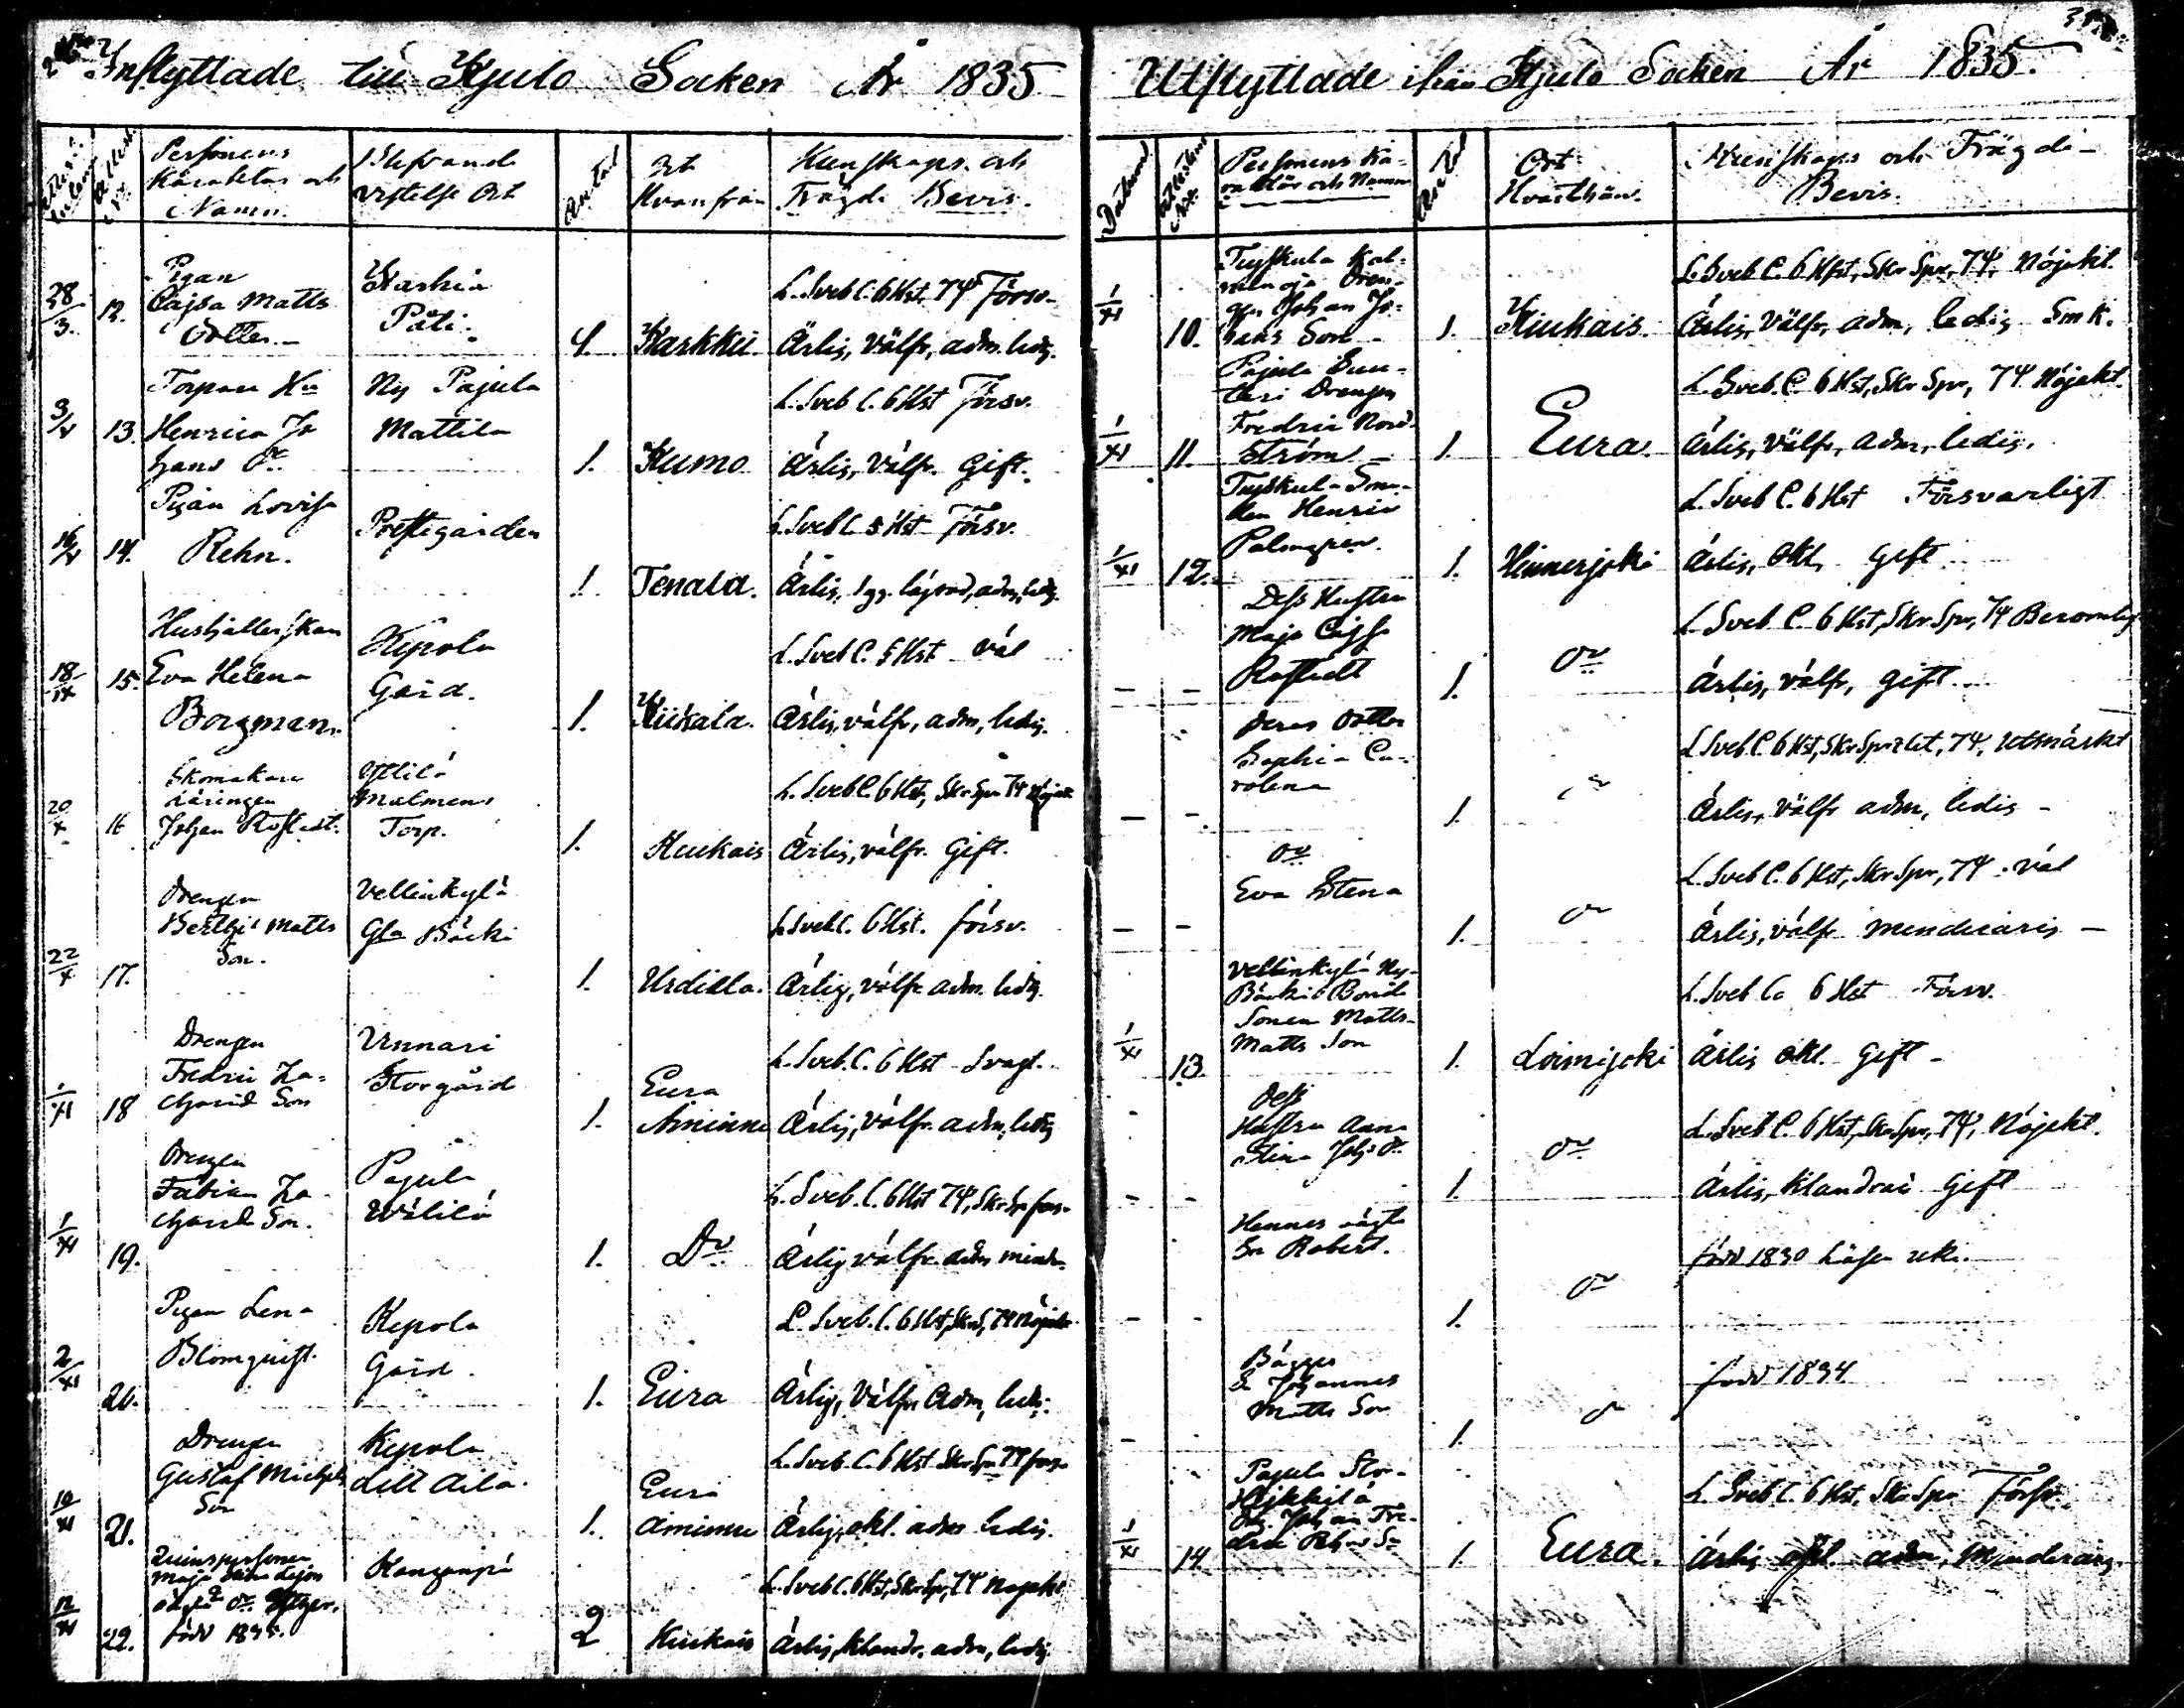 Inflyttade till Kjulo Socken År 1835
Personens Karakter och Namn.
Blifvande Vistelse Ort
Antal
Ort Hvarifrån
Kunskaps och Frägde Bevis.
28/3. 12.
Pigan
Cajsa Matts
Dotter.
Karhia
Päti.
1.
Karkku.
L. Sveb C. 6 Hst. 74 Försv.
Ärlig, Välfr, adm. ledig.
3/V 13.
Henrica Jo
hans Dr.
Ny Pajula
Mattila
1.
Kumo
L. Sveb C. 6 Hst Försv.
Ärlig, Välfr. Gift.
16/V 14.
Pigan Lovisa
Rehn.
Prestegården
1.
Tenala.
L. Sveb C 5 Hst Försv.
Ärlig, 1 gg. lägrad, adm, ledig.
18/IX 15.
Hushållerskan
Eva Helena
Borgman.
Kepola
Gård.
1.
Kiikala.
L. Sveb C. 5 Hst Väl
Ärlig, välfr, adm, ledig.
20/X 16
Skomakare
Johan Rostedt.
Yttilä
Malmens
Torp.
1.
Kiukais
L. Sveb C. 6 Hst, Skr Spr 74 Nöjakt
Ärlig, välfr. Gift.
22/X 17.
Drengen
Berthil Matts
Son.
Vellinkylä
Gla Bäcki
1.
Urdiala.
L. Sveb C. 6 Hst. försv.
Ärlig, välfr adm. ledig.
1/XI 18
Drengen
Fredric Za-
chariæ Son
Unnari
Storgård
1.
Eura
Aminne
L. Sveb. C. 6 Hst Svagt.
Ärlig, Välfr. adm, ledig
1/XI 19.
Drengen
Fabian Za-
chariæ Son.
Pajula
Wälilä
1.
Do
L. Sveb. C. 6 Hst 74, Skr Spr fors.
Ärlig välfr. adm mind.
2/XI 20.
Pigan Lena
Blomquist.
Kepola
Gård.
1.
Eura
L. Sveb. C. 6 Hst, 74 Nöjakt
Ärlig, Välfr, Adm, ledig.
10/XI 21.
Drengen
Gustaf Michels
Son
Kepola
Lill Aila.
1.
Eura
Aminne
L. Sveb. C. 6 Hst Skr Spr 74 fors.
Ärlig, okl. adm ledig.
12/XI 22.
född 1835.
2
Kiukais
L. Sveb C. 6 Hst, Skr Spr, 74 Nöjakt
Ärlig, klandr. adm, ledig.
Utflyttade ifrån Kjulo Socken År 1835.
Datum
Personens Ka-
raktär och Namn
Antal
Ort
Hvarthän.
Kunskaps och Frägde-
Bevis.
1/XI 10.
Tuiskula Kal-
Johan Jo-
hans Son
1.
Kiukais.
L. Sveb C. 6 Hst, Skr Spr, 74, Nöjakt.
Ärlig, Välfr, adm, ledig Smk.
1/XI 11.
Pajula Sun-
tari Drengen
Fredric Nord-
ström
1.
Eura.
L. Sveb. C. 6 Hst, Skr Spr, 74 Nöjakt.
Ärlig, välfr, adm, ledig.
1/XI 12.
Henric
Palmgren.
1.
Hinnerjoki
L. Sveb C. 6 Hst Försvarligt
Ärlig, Okl, Gift
Dess Hustru
Maja Cajsa
Rostedt
1.
Do
L. Sveb C. 6 Hst, Skr Spr, 74 Beromlig
Ärlig, välfr, gift.
Deras Dotter
Sophia Ca-
rolina
1.
Do
L. Sveb. C. 6 Hst, Skr Spr 74, Utmärkt
Ärlig, Välfr adm, ledig
Do
Eva Stena
1.
Do
L. Sveb C. 6 Hst, Skr Spr, 74. väl
Ärlig, välfr Minderårig
1/XI 13.
Vellinkylä Ny-
Bäcki Bonde
Sonen Matts
Matts Son
1.
Loimijoki
L. Sveb C. 6 Hst Försv.
Ärlig Okl. Gift
Dess
Hustru Anna
Stina Johs Dr
1.
Do
L. Sveb C. 6 Hst, Skr Spr, 74, Nöjakt.
Ärlig, klandrad Gift
Hennes oägta
Son Robert.
1.
Do
född 1830
Bägges
S. Johannes
Matts Son
1.
Do
född 1834
1/XI 14.
Pajula Stor-
Heikkilä
1.
Eura.
L. Sveb C. 6 Hst. Skr Spr Försv.
Ärlig okl. adm, Minderårig